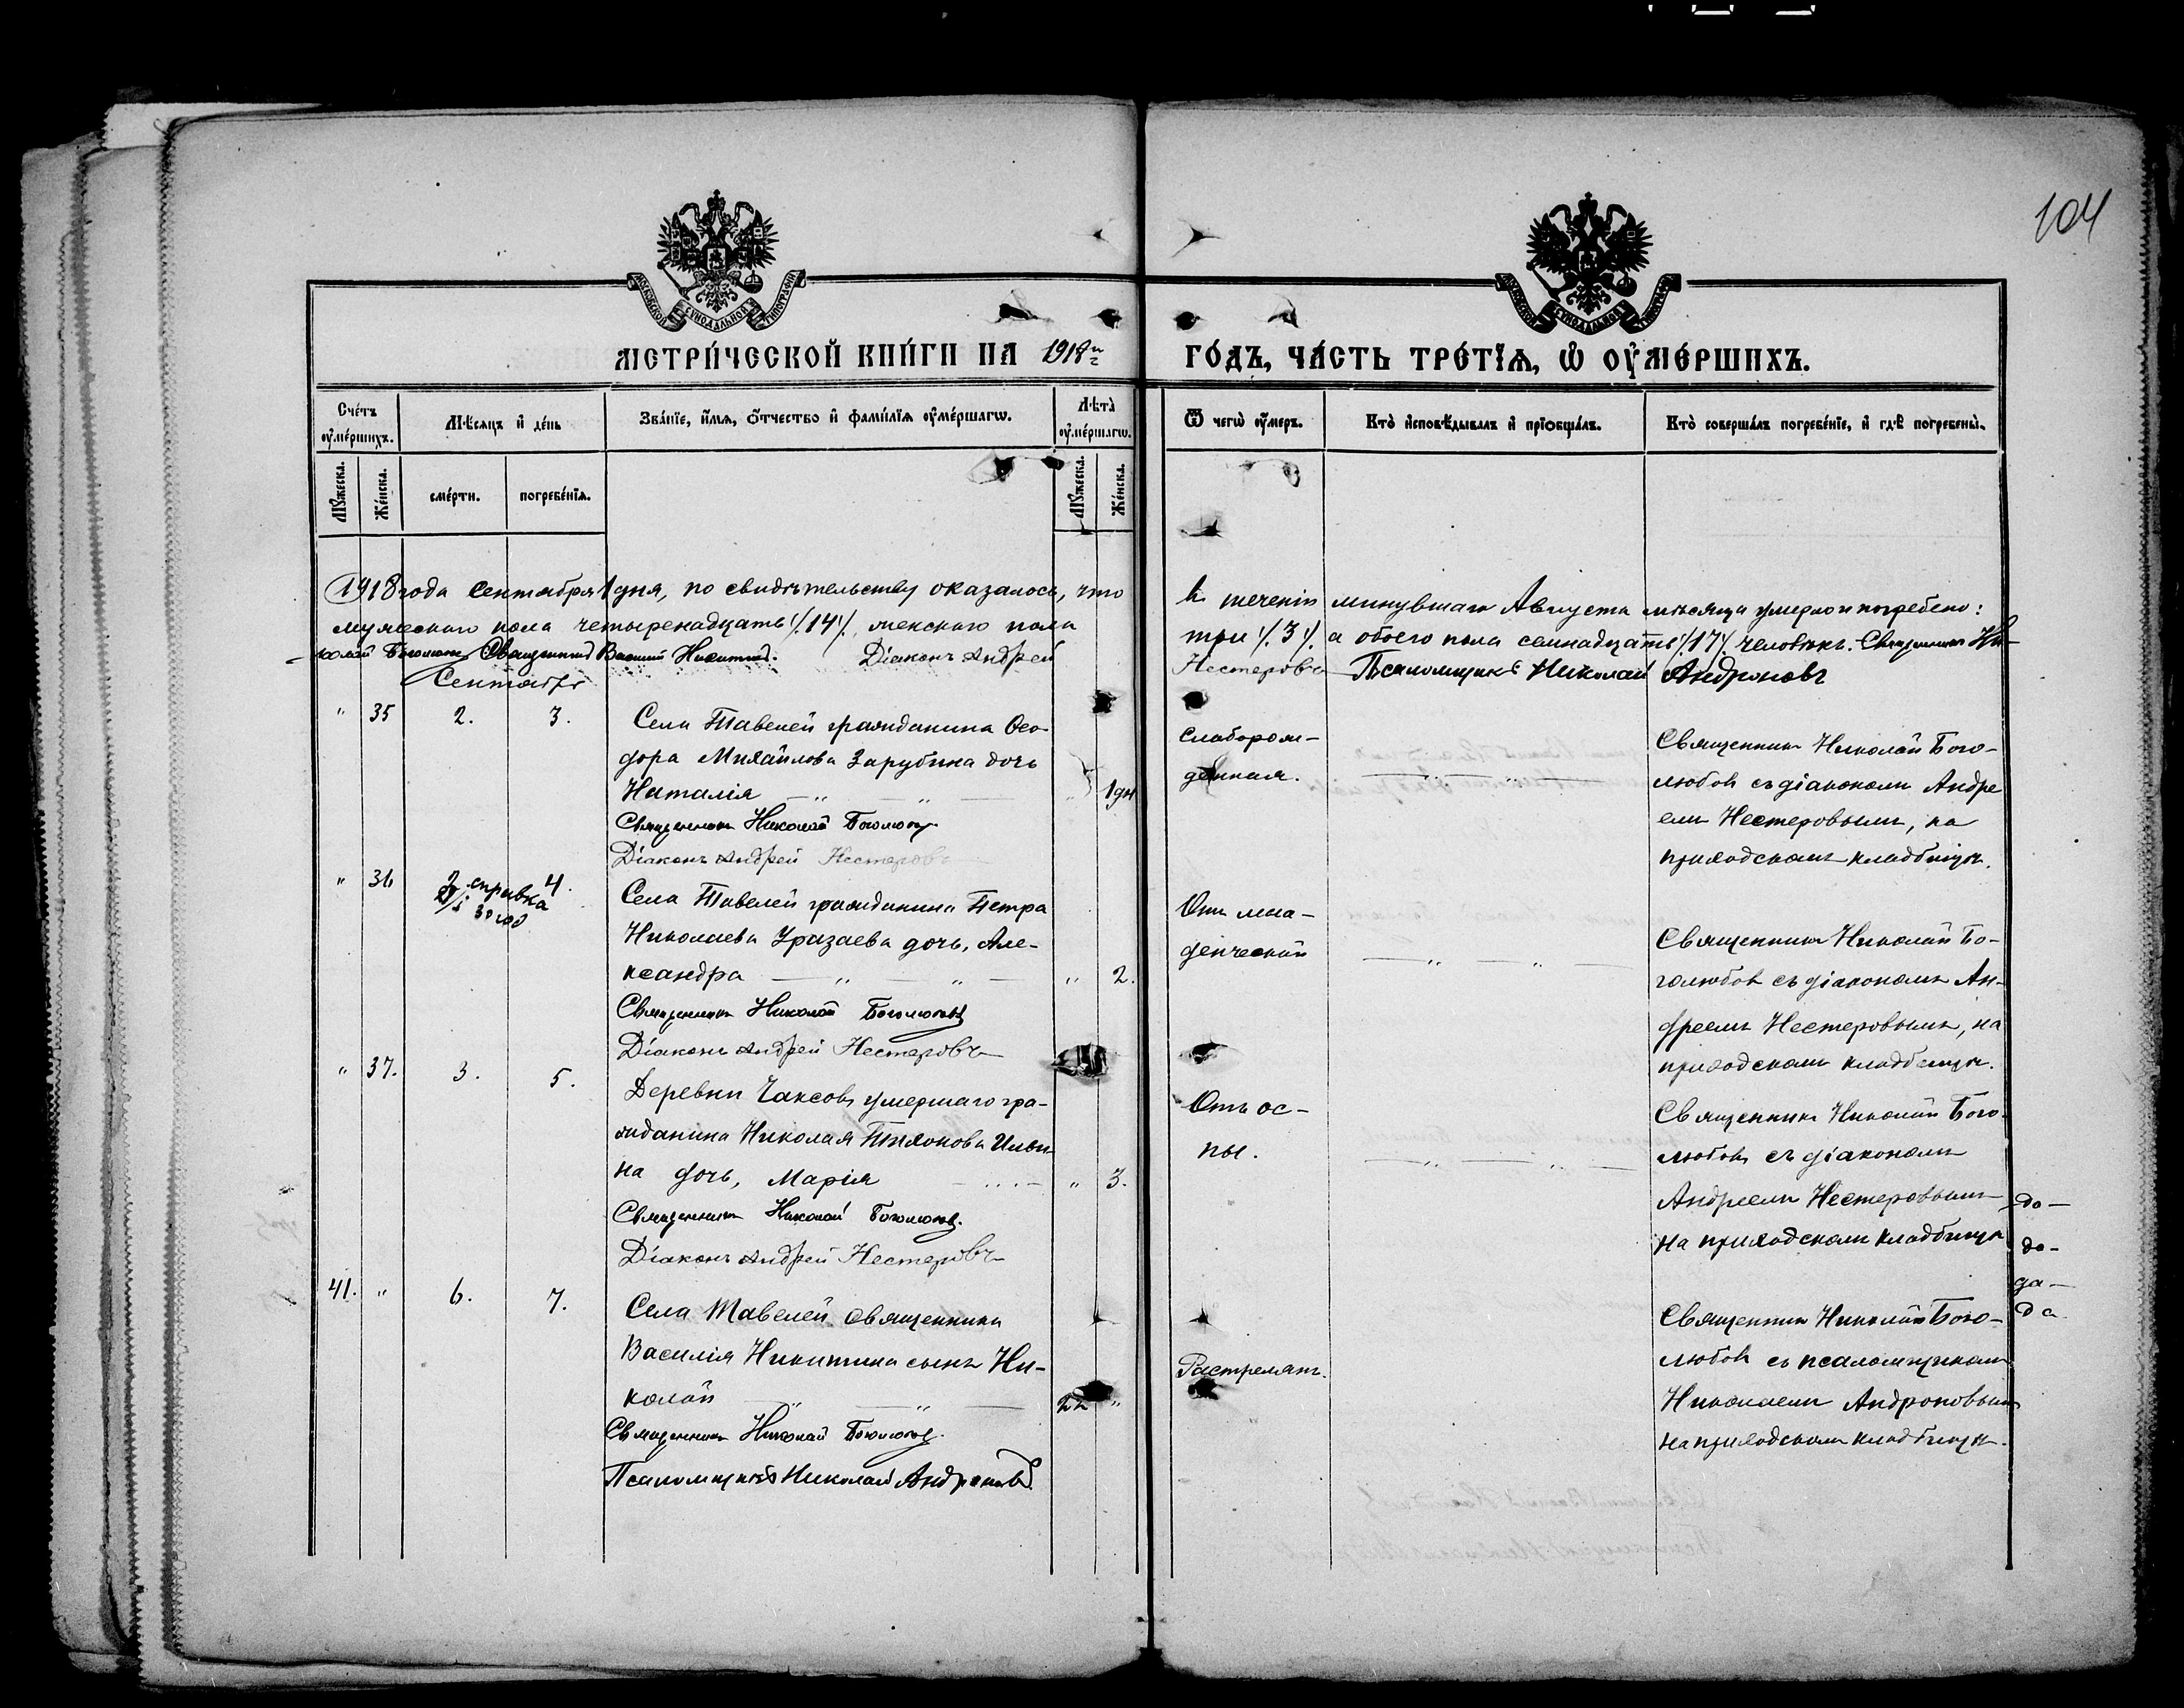 104
МОСКОВСКОЙ СѴНОДАЛЬНОЙ ТИПОГРАФІИ
МОСКОВСКОЙ СѴНОДАЛЬНОЙ ТИПОГРАФІИ
МЕТРИ́ЧЕСКОЙ КНИ́ГИ НА 1918й ГО́ДЪ, ЧА́СТЬ ТРЕ́ТЇѦ, Ѽ ОУ҆МЕ́РШИХЪ.
Сче́тъ оу҆ме́ршихъ.
Мѣ́сяцъ и҆ де́нь
Зва́нїе, и҆́мѧ, ѻ҆́тчество и҆ фами́лїѧ оу҆ме́ршагѡ.
Лѣта̀ оу҆ме́ршагѡ.
Ѿ чегѡ̀ оу҆́меръ.
Кто̀ и҆сповѣ́дывалъ и҆ прїѡбща́лъ.
Кто̀ соверша́лъ погребе́нїе, и҆ гдѣ̀ погребены̀.
Мꙋ́жеска.
Же́нска.
сме́рти.
погребе́нїѧ.
Мꙋ́жеска.
Же́нска.
1918 года Сентября 1 дня, по свидѣтельству оказалось, что въ теченіи минувшаго Августа мѣсяца умерло и погребено:
мужескаго пола четыренадцать /.14/. женскаго пола три /.3/. а обоего пола семнадцать /.17/. человѣкъ. Священникъ Ни-
колай Боголюбовъ Священникъ Василій Никитинъ. Діаконъ Андрей Нестеровъ Псаломщикъ Николай Андроновъ
Сентябрь
" 35 2. 3.
Села Тавелей гражданина Ѳео-
дора Михайлова Зарубина дочь
Наталія " 1 дн
Священникъ Николай Боголюбовъ
Діаконъ Андрей Нестеровъ
Слаборож-
денная.
Священникъ Николай Бого-
любовъ съ діакономъ Андре
емъ Нестеровымъ, на
приходскомъ кладбищѣ.
" 36 2 4.
справка
Села Тавелей гражданина Петра
Николаева Уразаева дочь, Але-
ксандра " 2.
Священникъ Николай Боголюбовъ
Діаконъ Андрей Нестеровъ
Отъ мла-
денческой
Священникъ Николай Бо-
голюбовъ съ діакономъ Ан-
дреемъ Нестеровымъ, на
приходскомъ кладбищѣ.
" 37. 3. 5.
Деревни Чаксовъ умершаго гра-
жданина Николая Тихонова Ильи-
на дочь, Марія " 3.
Священникъ Николай Боголюбовъ.
Діаконъ Андрей Нестеровъ
Отъ ос-
пы.
Священникъ Николай Бого-
любовъ съ діакономъ
Андреемъ Нестеровымъ
на приходскомъ кладбищѣ
до-
до-
да-
да
41. " 6. 7.
Села Тавелей священника
Василія Никитина сынъ Ни-
колай 22 "
Священникъ Николай Боголюбовъ.
Псаломщикъ Николай Андроновъ.
Растрелянъ.
Священникъ Николай Бого-
любовъ съ псаломщикомъ
Николаемъ Андроновымъ
на приходскомъ кладбищѣ.